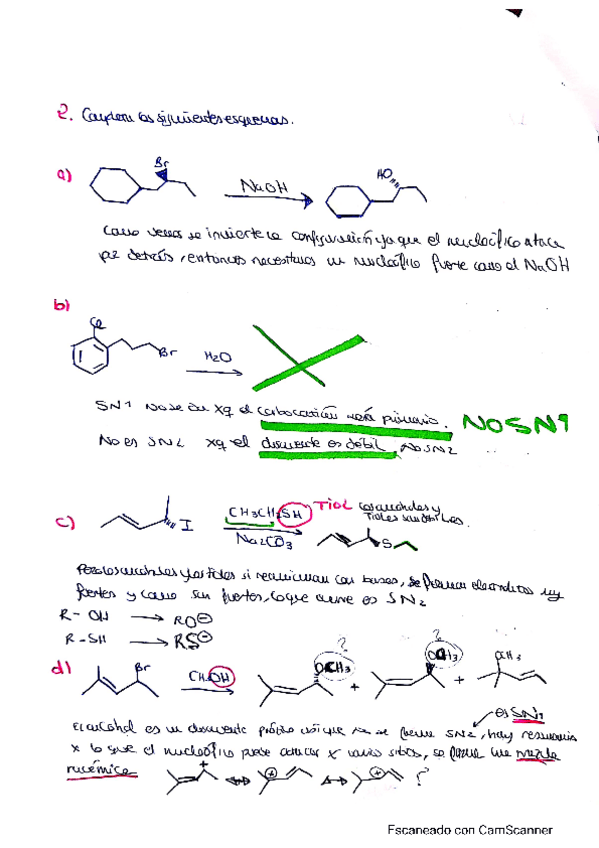 2. Completa los siguientes esquemas.
a)
Br
NaOH
HO
como vemos se invierte la configuración ya que el nucleófilo ataca
por detrás, entonces necesitamos un nucleófilo fuerte como el NaOH
b)
Cl
Br
H2O
SN1 no se da xq el carbocatión será primario. NO SN1
No es SN2 xq el disolvente es débil, No SN2
c)
I
CH3CH2SH
Na2CO3
TIOL
S
fuertes y como son fuertes, lo que ocurre es SN2
R-OH → RO⊖
R-SH → RS⊖
d)
Br
CH3OH
?
OCH3
+
?
OCH3
+
OCH3
es SN1
El alcohol es un disolvente prótico así que no se puede SN2, hay resonancia
x lo que el nucleófilo puede atacar x varios sitios, se forma una mezcla
racémica
+
⊕
⊕
?
Escaneado con CamScanner